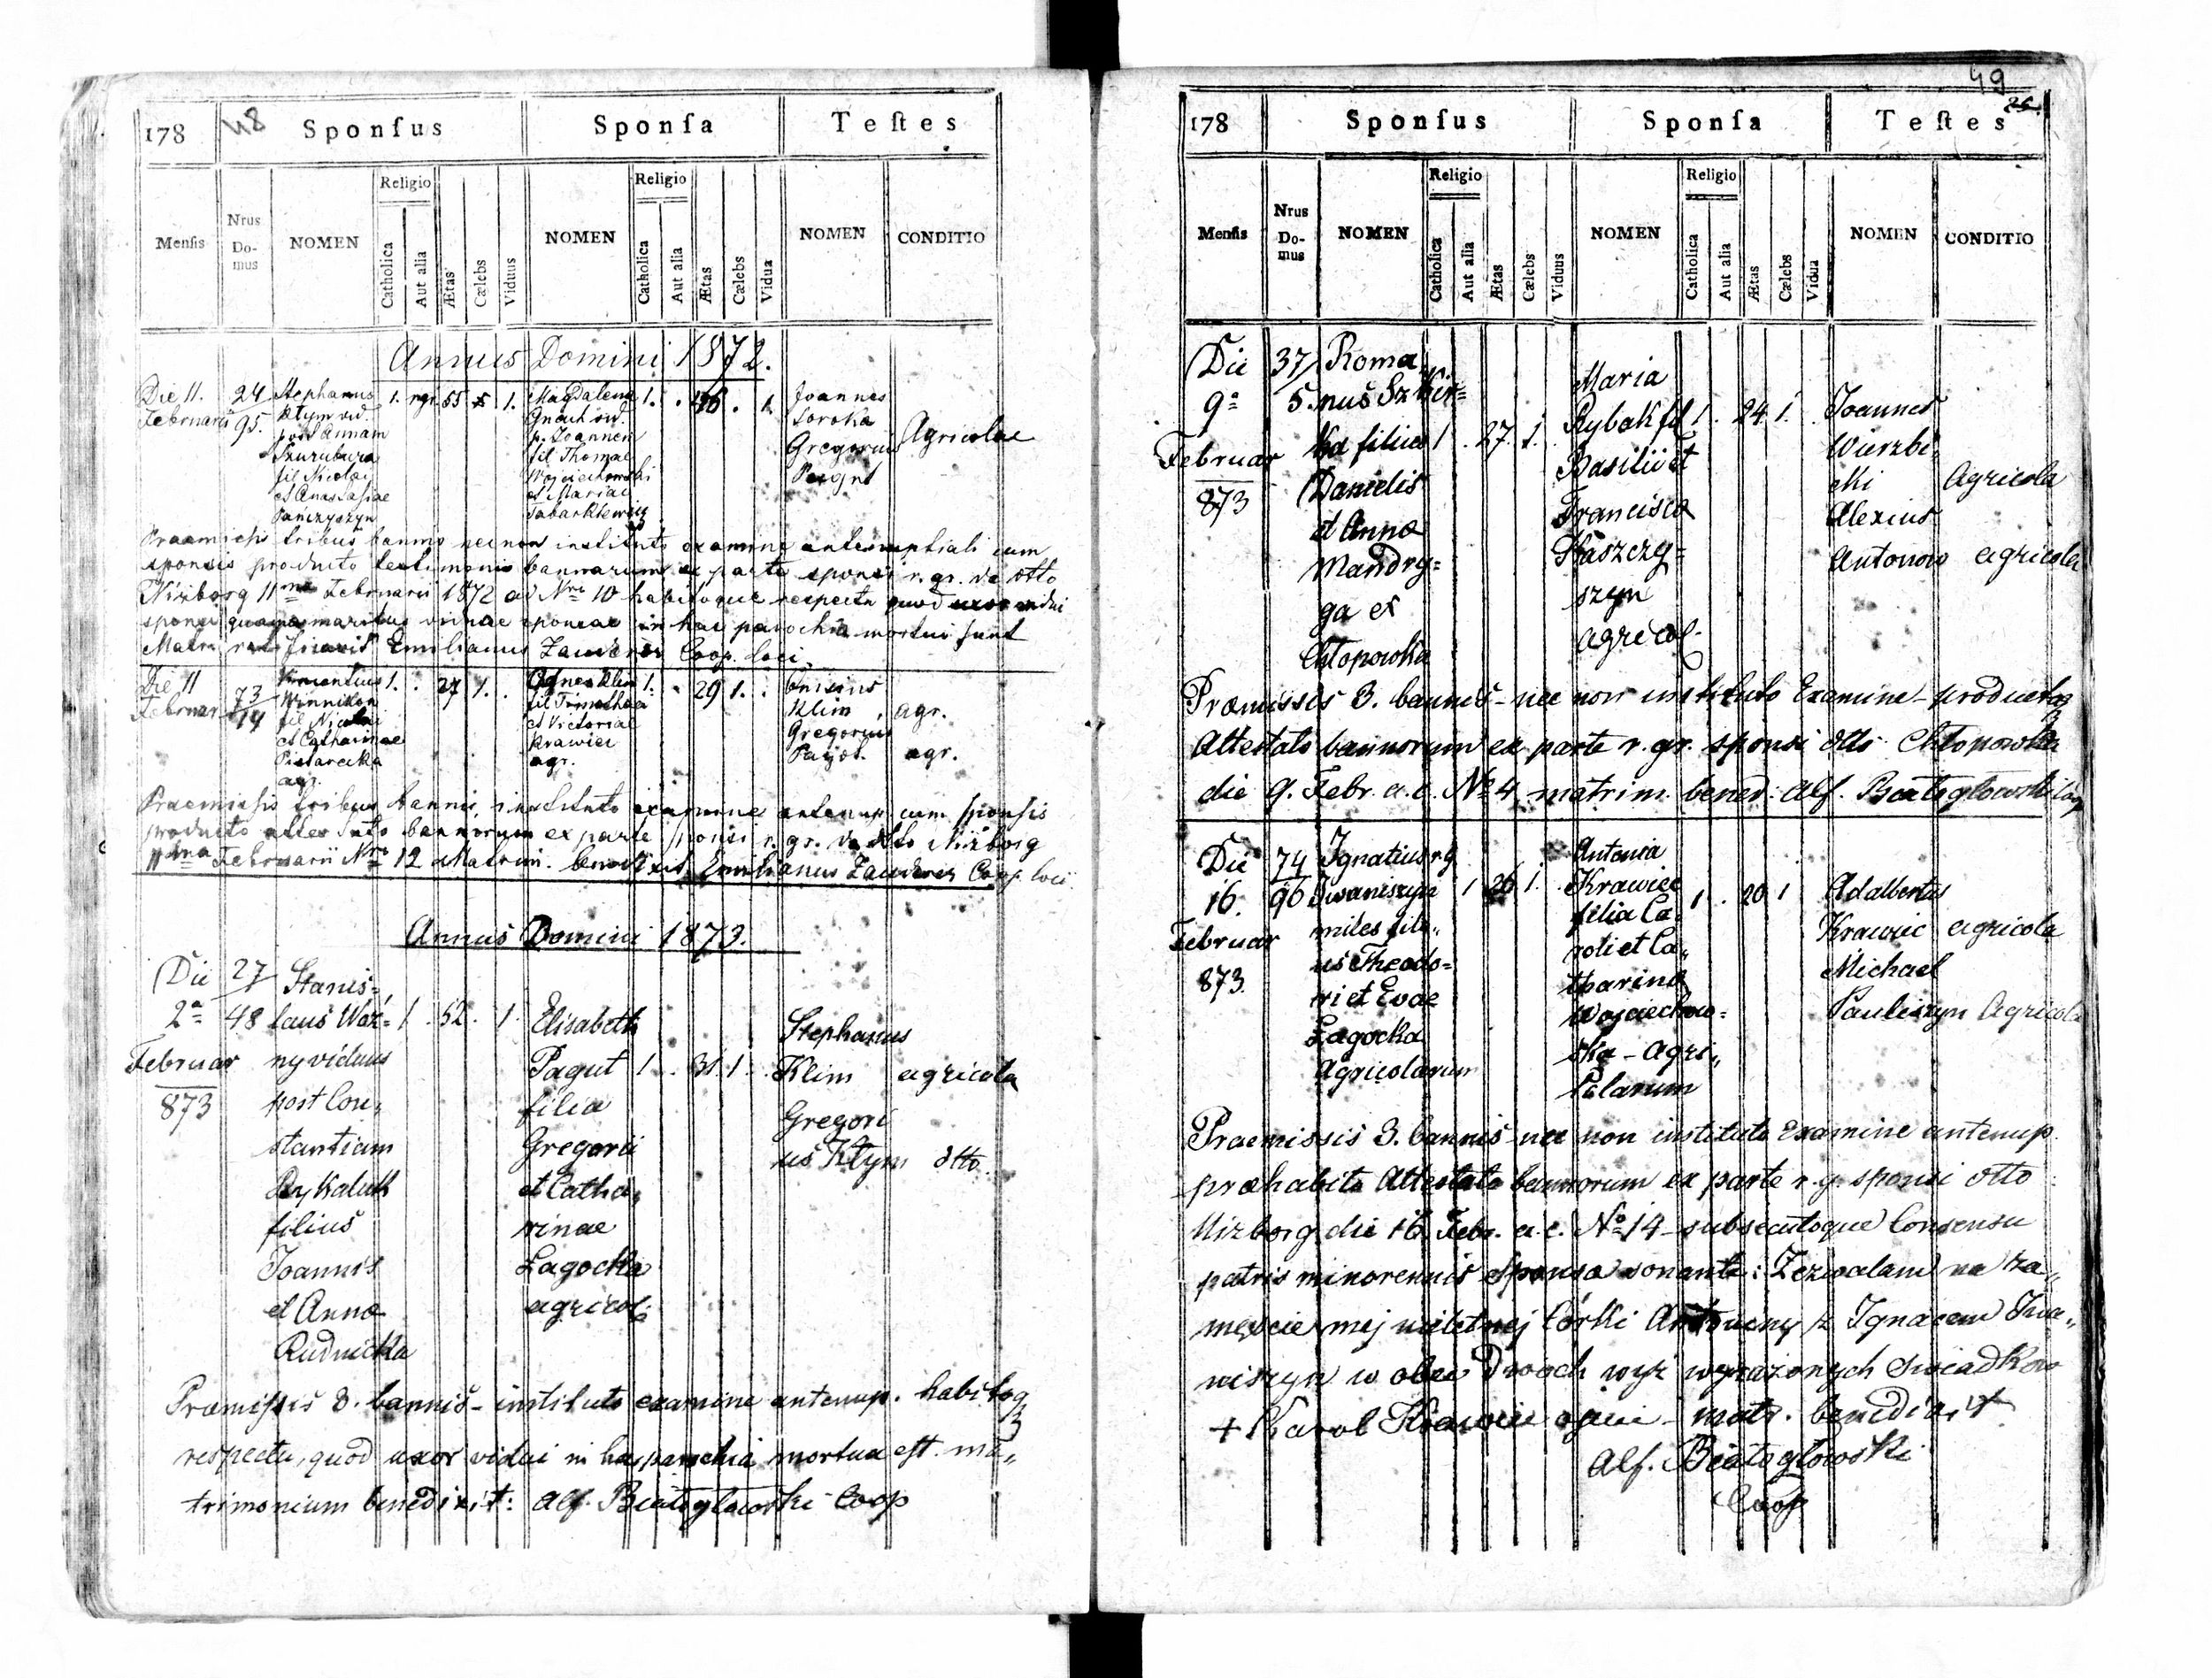 48
178 Sponſus Sponſa Teſtes
Religio Religio
Menſis Nrus Do-mus NOMEN Catholica Aut alia Ætas Cælebs Viduus NOMEN Catholica Aut alia Ætas Cælebs Vidua NOMEN CONDITIO
Annus Domini 1872.
Die 11. 24 Stephanus 1. rgr. 55 1. Magdalena 1. . 1. Joannes
Februarii 95. Klym vid. Gnach vid. Soroka
post Annam p. Joannem Gregorius Agricolae
fil Thomae
fil Nicolai Wojciechowski
et Anastasiae et Mariae
Pańczyszyn Tabarkiewicz
Praemissis tribus bannis necnon instituto examine antenuptiali cum
sponsis producto testimonio bannorum ex parte sponsi r. gr. de dtto
Niżborg 11ma Februarii 1872 ad Nro 10 habitoque respectu quod uxor vidui
sponsi quam maritus viduae sponsae in hac parochia mortui sunt
Matr. Emilianus Coop. loci.
Die 11 73 Vincentius 1. . 27 1. . Agnes Klim 1. . 29 1. . Onisius
Februar 14 Winnikow fil Timothei Klim, agr.
fil Nicolai et Victoriae Gregorius
et Catharinae Krawiec agr.
Pisarecka agr.
agr.
Praemissis tribus bannis, instituto examine antenup cum sponsis
producto attestato bannorum ex parte sponsi r. gr. de dtto Niżborg
11ma Februarii Nro 12 Matrim. benedixit Emilianus Coop. loci
Annus Domini 1873.
Die 27 Stanis=
2a 48 laus Waź= 1 . 52 . 1 Elisabeth Stephanus
Februar ny viduus Pagut 1 . 31. 1. . Klim agricola
873 post Con, filia Gregori
stantiam Gregorii us Klym dtto.
Rykaluk et Catha,
filius rinae
Joannis Łagocka
et Annæ agricol.
Rudnicka
Præmissis 3. bannis - instituto examine antenup. habitoq
respectu, quod uxor vidui in hac parochia mortua est. ma,,
trimonium benedixit: Alf. Białogłowski Coop
49
178 Sponſus Sponſa Teſtes
Religio Religio
Menſis Nrus Do-mus NOMEN Catholica Aut alia Ætas Cælebs Viduus NOMEN Catholica Aut alia Ætas Cælebs Vidua NOMEN CONDITIO
Die 37 Roma,, Maria
9a 5. nus Szkir= Rybak fil 1 . 24. 1. . Joannes
Februar ka filius 1 . 27. 1. . Basilii et Wierzbi,
873 Danielis Francisca cki Agricola
et Annæ Kaszczy= Alexius
Mandry= szyn Antonow agricola
ga ex agricol.
Chłopowka
Præmissis 3. bannis - nec non instituto Examine - productoq
Attestato bannorum ex parte r. gr. sponsi dtto Chłopowka
die 9. Febr. a. c. No 4 matrim. bened: Alf. Białogłowski Coop
Die 74 Ignatius r. g Antonia
16. 96 Iwaniszyn 1 . 26 1. . Krawiec 1 . 20 1 Adalbertus
Februar miles fili,, filia Ca, Krawiec agricola
873. us Theodo= roli et Ca,, Michael
ri et Evae tharinæ Pauliszyn Agricola
Łagocka Wojciechow=
Agricolarum ska - Agri,,
colarum
Praemissis 3. bannis - nec non instituto Examine antenup.
præhabito Attestato bannorum ex parte r. g. sponsi dtto
Nizborg die 16 Febr. a. c. No 14 - subsecutoque Consensu
patris minorennis Sponsæ sonante: Zezwalam na za,,
męście mej nieletnej Córki Antoniny z Ignacem Iwa,,
niszyn w obec Dwóch wyż wyrażonych Swiadkow
+ Karol Krawiec ojciec - matr. benedixit
Alf. Białogłowski
Coop